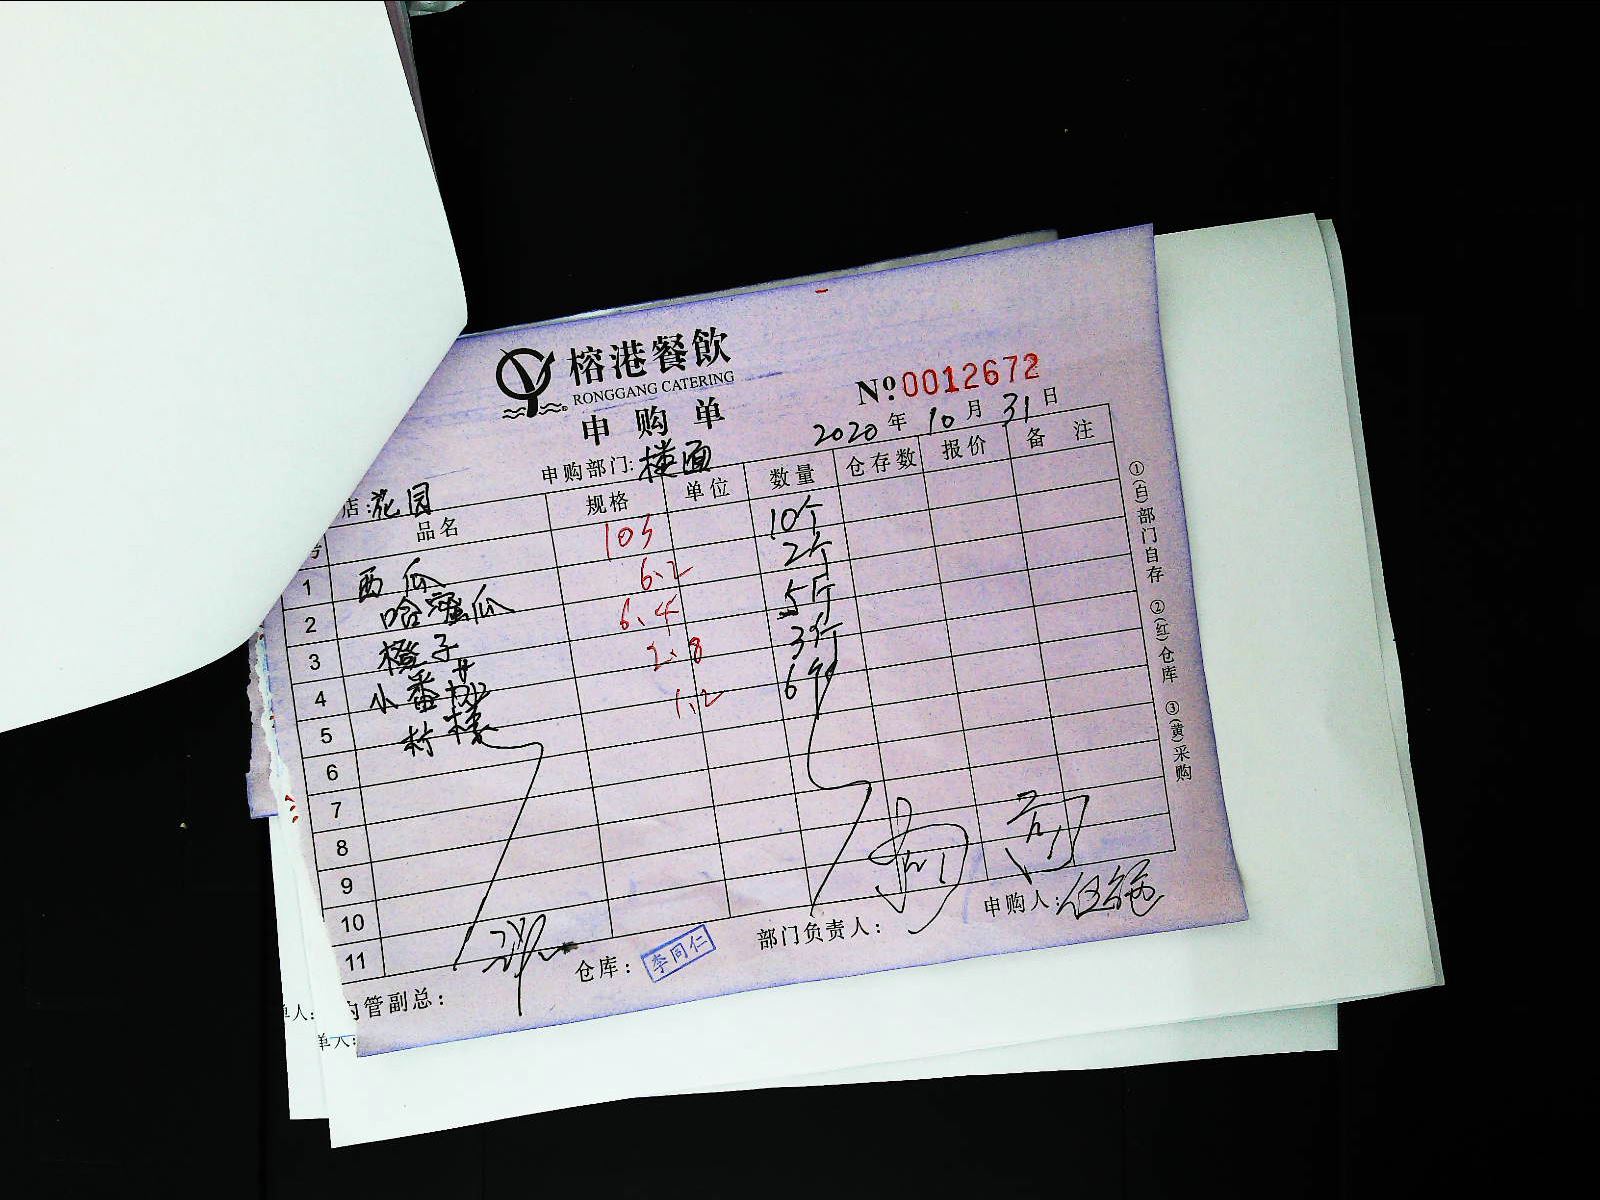 榕港餐飲
RONGGANG CATERING
申购单
No 0012672
2020年10月31日
店:花园
申购部门:楼面
号 品名 规格 单位 数量 仓存数 报价 备注
1 西瓜 103 10个
2 哈蜜瓜 6.2 2个
3 橙子 6.4 5斤
4 小番茄 2.8 3斤
5 柠檬 1.2 6个
6
7
8
9
10
11
①(白)部门自存 ②(红)仓库 ③(黄)采购
内管副总:
仓库:李同仁
部门负责人:
申购人:
单人:
单人: